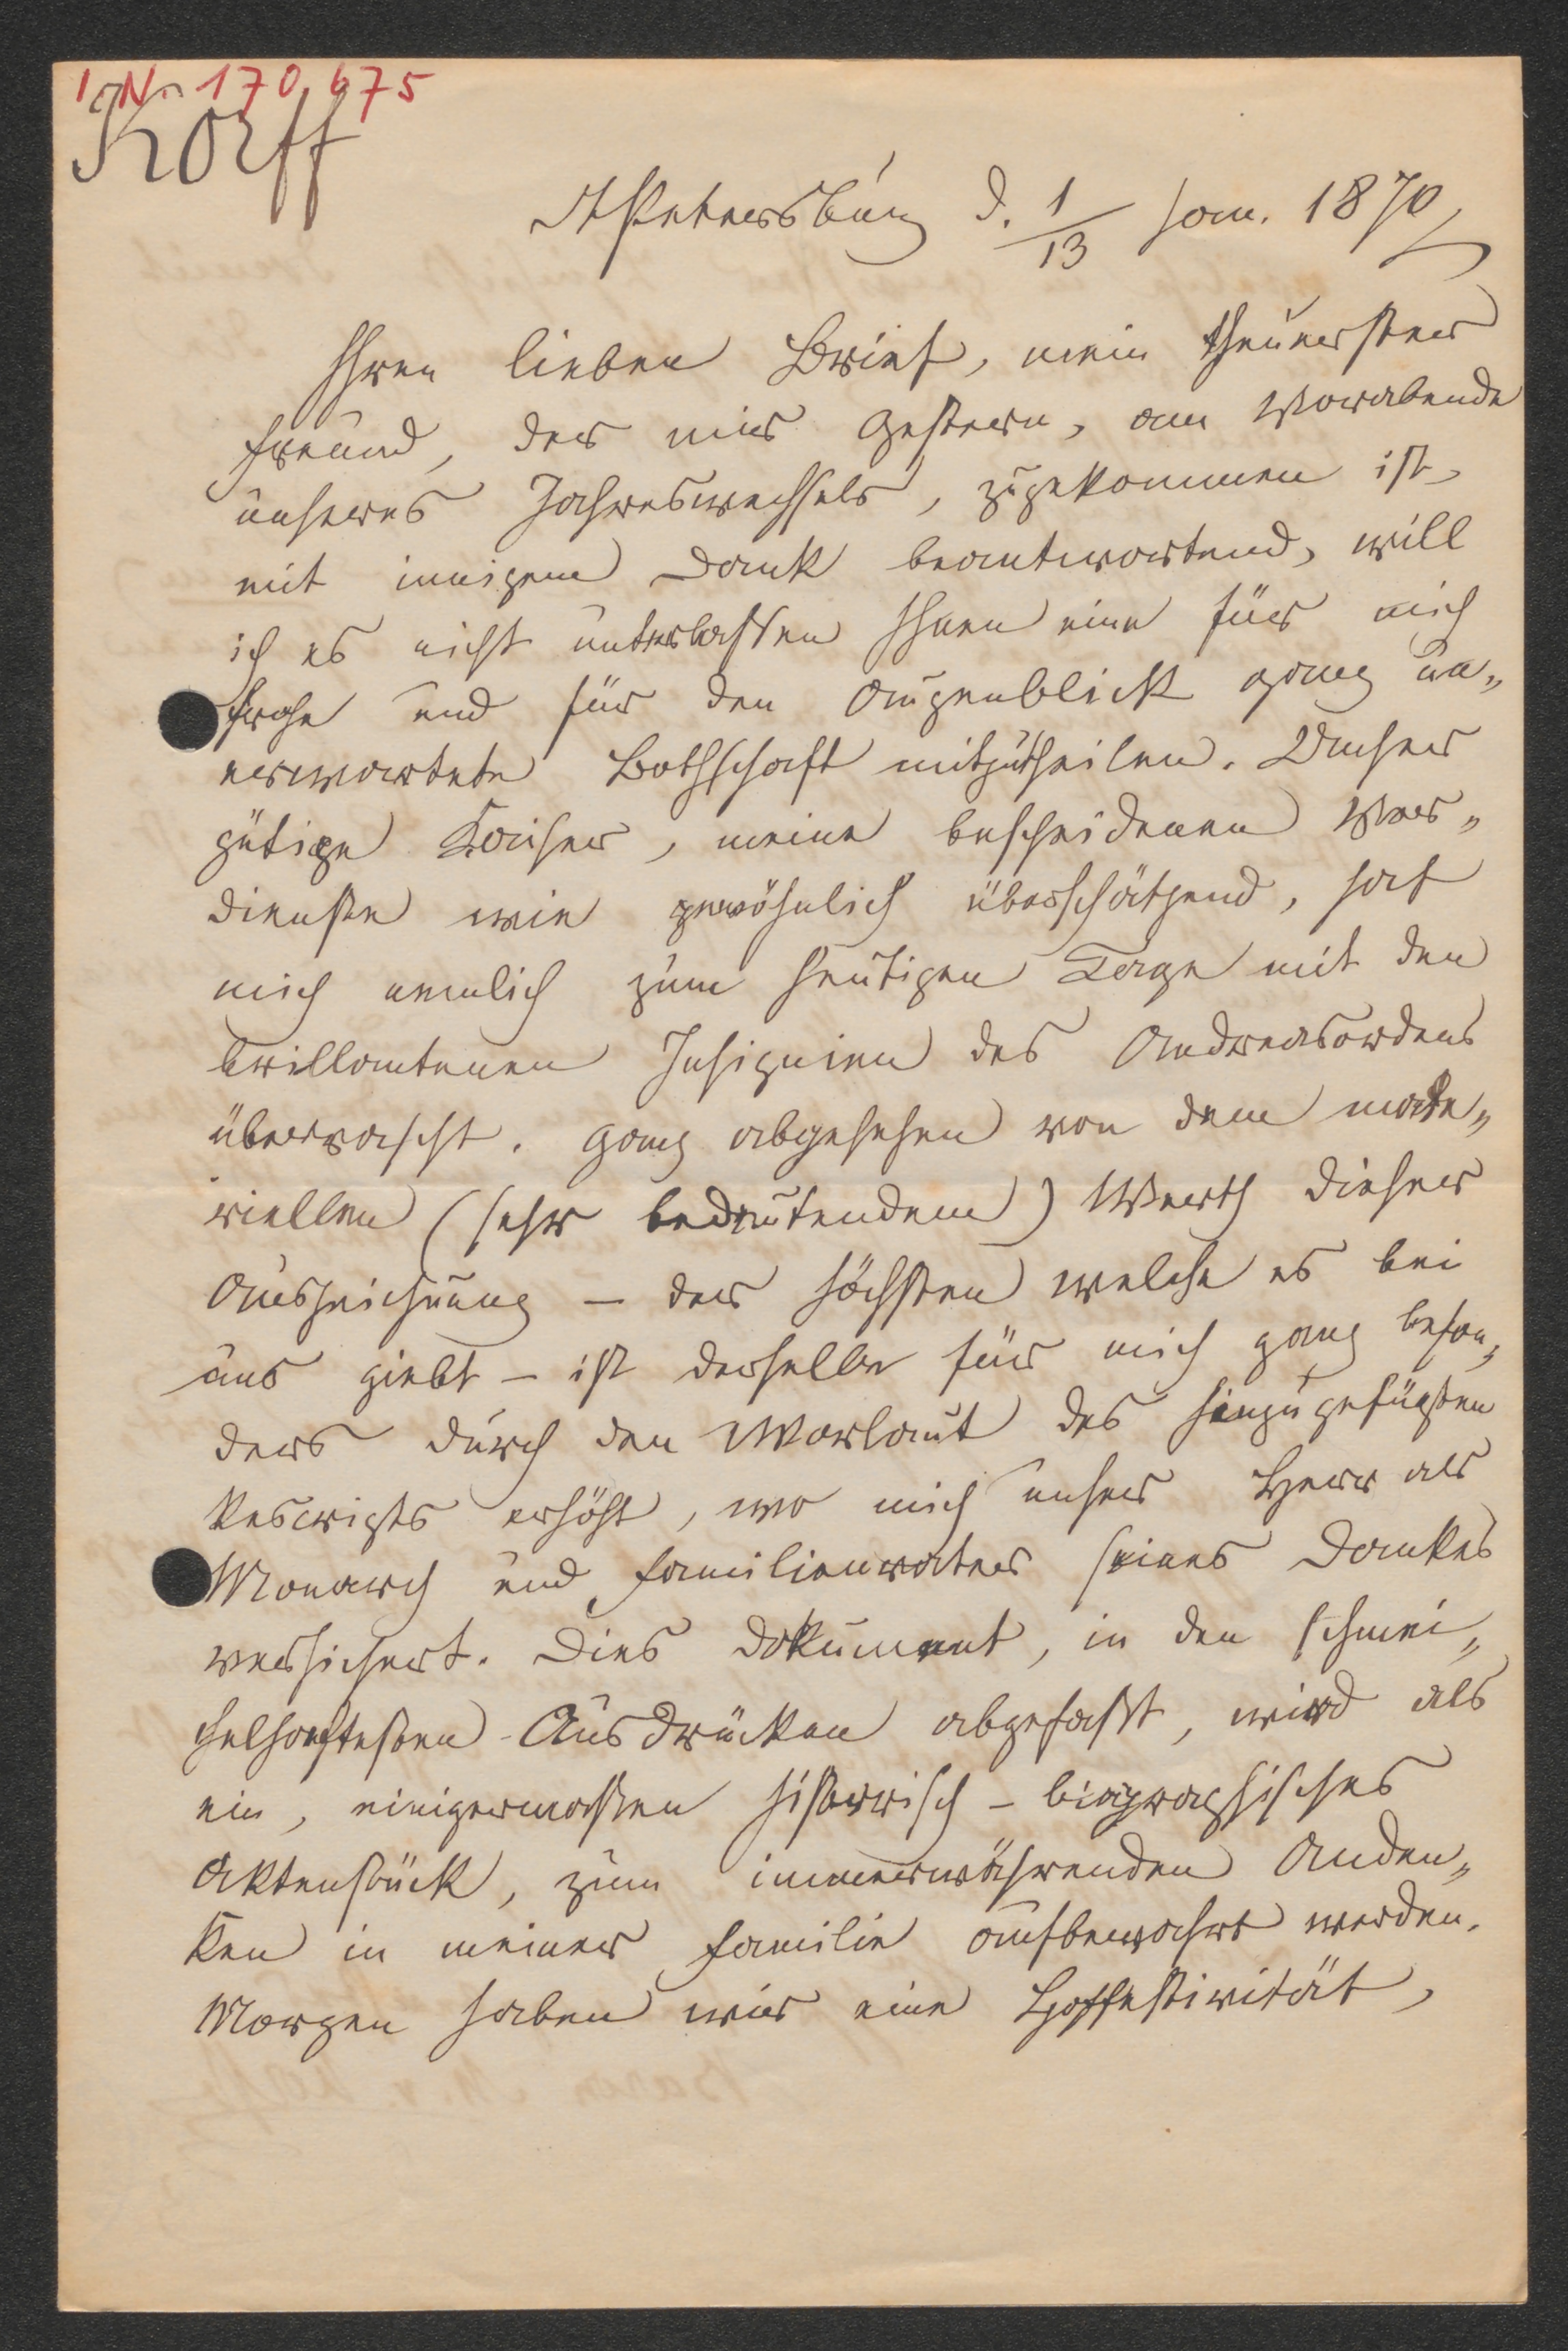 I.N. 170,675
Korff
St Petersburg d. 1/13 Jan. 1870
Ihren lieben Brief, mein theuerster
Freund, der mir gestern, am Vorabende
unseres Jahreswechsels, zugekommen ist,
mit innigem Dank beantwortend, will
ich es nicht unterlassen Ihnen eine für mich
frohe und für den Augenblick ganz un„
erwartete Bothschaft mitzutheilen. Unser
gütige Kaiser, meine bescheidenen Ver„
dienste wie gewöhnlich überschätzend, hat
mich nemlich zum heutigen Tage mit den
brillantenen Insignien des Andreasordens
überrascht. Ganz abgesehen von dem mate„
riellen (sehr bedeutendem) Werth dieser
Auszeichnung – der höchsten welche es bei
uns giebt – ist derselbe für mich ganz beson„
ders durch den Worlaut des hinzugefügten
Rescripts erhöht, wo mich unser Herr als
Monarch und Familienvater seines Dankes
versichert. Dies Dokument, in den schmei„
chelhaftesten Ausdrücken abgefaßt, wird als
ein, einigermaßen historisch-biographisches
Aktenstück, zum immerwährenden Anden„
ken in meiner Familie aufbewahrt werden.
Morgen haben wir eine Hoffestivität,